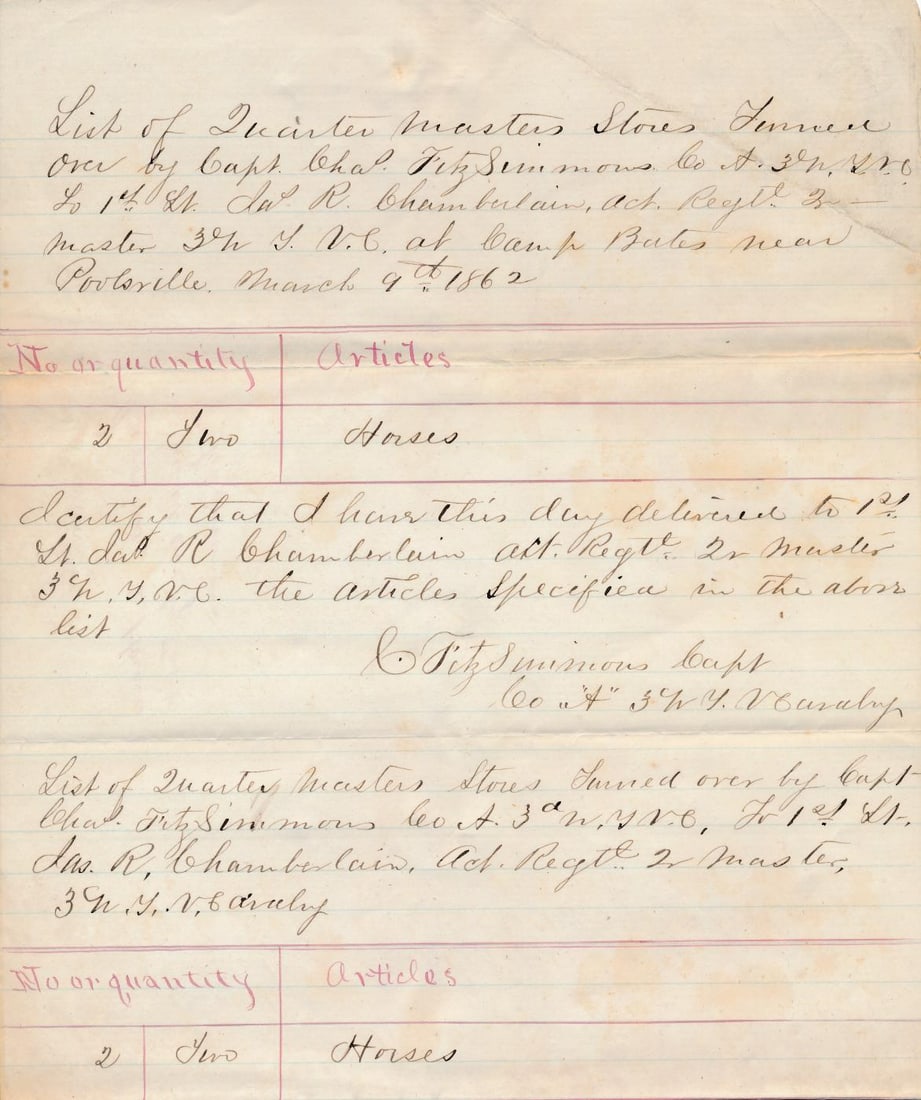 List of Quarter Masters Stores Turned
over by Capt. Chas. FitzSimmons Co A. 3d N, Y V. C
To 1st. Lt. Jas. R. Chamberlain, Act. Regtl. Qr —
master 3d N Y. V. C. at Camp Bates near
Poolsville. March 9th 1862
No or quantity Articles
2 Two Horses
I certify that I have this day delivered to 1st.
Lt. Jas. R Chamberlain act. Regtl. Qr Master
3d N, Y, V. C. the articles specified in the above
list
C. FitzSimmons Capt
Co "A" 3d N Y. V Cavalry
List of Quarter Masters Stores Turned over by Capt
Chas. FitzSimmons Co A. 3d N, Y V. C, To 1st. Lt.,
Jas. R, Chamberlain, Act. Regtl. Qr Master,
3d N. Y. V, Cavalry
No or quantity Articles
2 Two Horses